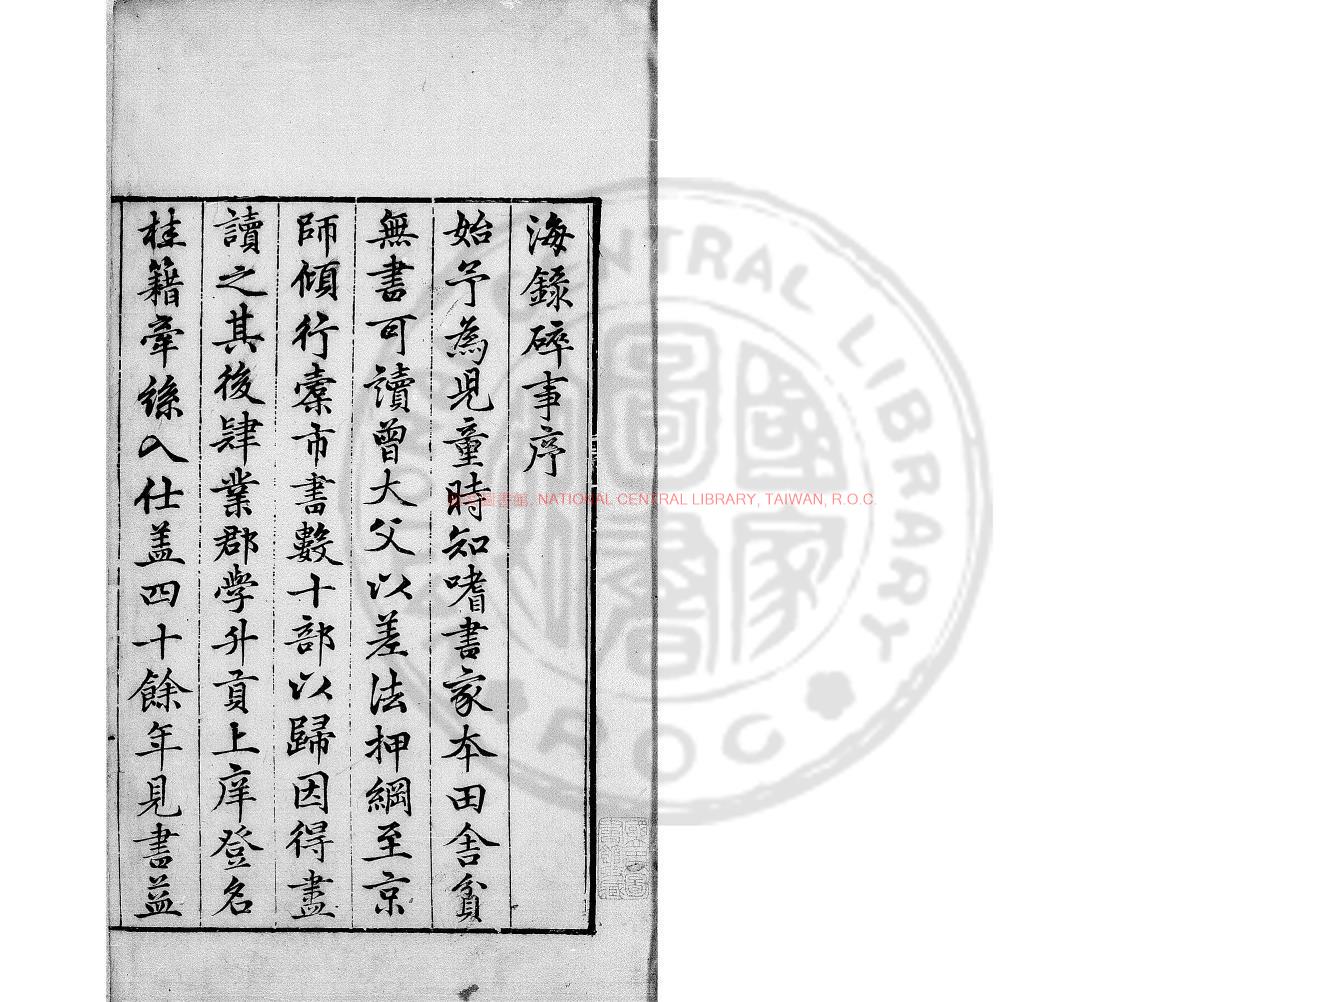 海錄碎事序
始予為児童時知嗜書家本田舎貧
無書可讀曾大父以差法押綱至京
師傾行橐市書數十部以歸因得盡
讀之其後肄業郡學升貢上庠登名
桂籍牽絲入仕盖四十餘年見書益
圖書館, NATIONAL CENTRAL LIBRARY, TAIWAN, R.O.C.
CENTRAL LIBRARY
ROC
國家圖書